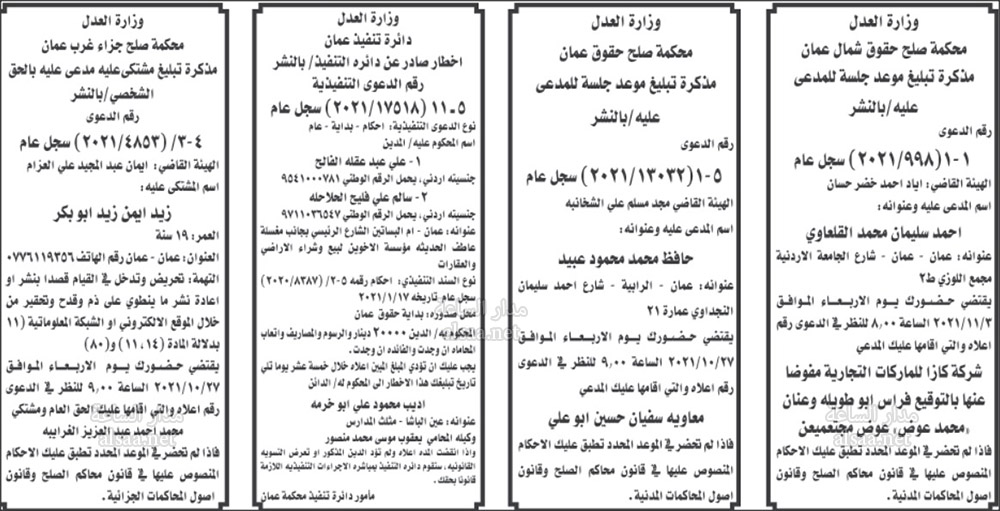 وزارة العدل
محكمة صلح حقوق شمال عمان
مذكرة تبليغ موعد جلسة للمدعى
عليه/بالنشر
رقم الدعوى
١-١ (٢٠٢١/٩٩٨) سجل عام
الهيئة القاضي: اياد احمد خضر حسان
اسم المدعى عليه وعنوانه:
احمد سليمان محمد القلعاوي
عنوانه: عمان - عمان - شارع الجامعة الاردنية
مجمع اللوزي ط٢
يقتضي حضورك يوم الاربعاء الموافق
٢٠٢١/١١/٣ الساعة ٨,٠٠ للنظر في الدعوى رقم
اعلاه والتي اقامها عليك المدعي
شركة كازا للماركات التجارية مفوضا
عنها بالتوقيع فراس ابو طويله وعنان
«محمد عوض» عوض مجتمعيعن
فاذا لم تحضر في الموعد المحدد تطبق عليك الاحكام
المنصوص عليها في قانون محاكم الصلح وقانون
اصول المحاكمات المدنية.
وزارة العدل
محكمة صلح حقوق عمان
مذكرة تبليغ موعد جلسة للمدعى
عليه/بالنشر
رقم الدعوى
٥-١ (٢٠٢١/١٣٠٣٢) سجل عام
الهيئة القاضي مجد مسلم علي الشخانبه
اسم المدعى عليه وعنوانه:
حافظ محمد محمود عبيد
عنوانه: عمان - الرابية - شارع احمد سليمان
النجداوي عمارة ٢١
يقتضي حضورك يوم الاربعاء الموافق
٢٠٢١/١٠/٢٧ الساعة ٩,٠٠ للنظر في الدعوى
رقم اعلاه والتي اقامها عليك المدعي
معاويه سفيان حسين ابو علي
فاذا لم تحضر في الموعد المحدد تطبق عليك الاحكام
المنصوص عليها في قانون محاكم الصلح وقانون
اصول المحاكمات المدنية.
وزارة العدل
دائرة تنفيذ عمان
اخطار صادر عن دائره التنفيذ/ بالنشر
رقم الدعوى التنفيذية
٥-١١ (٢٠٢١/١٧٥١٨) سجل عام
نوع الدعوى التنفيذية: احكام - بداية - عام
اسم المحكوم عليه/ المدين
١- علي عبد عقله الفالح
جنسيته اردني، يحمل الرقم الوطني ٩٥٤١٠٠٠٧٨١
٢- سالم علي فليح الحلاحله
جنسيته اردني، يحمل الرقم الوطني ٩٧١١٠٣٦٥٤٧
عنوانه: عمان - ام البساتين الشارع الرئيسي بجانب مغسلة
عاطف الحديثه مؤسسة الاخوين لبيع وشراء الاراضي
والعقارات
نوع السند التنفيذي: احكام رقمه ٥-٢/ (٢٠٢٠/٨٣٨٧)
سجل عام تاريخه ٢٠٢١/١/١٧
محل صدوره: بداية حقوق عمان
المحكوم به/ الدين ٢٠٠٠٠ دينار والرسوم والمصاريف واتعاب
المحاماه ان وجدت والفائده ان وجدت.
يجب عليك ان تؤدي المبلغ المبين اعلاه خلال خمسة عشر يوما تلي
تاريخ تبليغك هذا الاخطار الى المحكوم له/ الدائن
اديب محمود علي ابو خرمه
عنوانه: عين الباشا - مثلث المدارس
وكيله المحامي يعقوب موسى محمد منصور
واذا انقضت المده اعلاه ولم تؤد الدين المذكور او تعرض التسويه
القانونيه، ستقوم دائره التنفيذ بمباشره الاجراءات التنفيذيه اللازمة
قانونا بحقك.
مأمور دائرة تنفيذ محكمة عمان
وزارة العدل
محكمة صلح جزاء غرب عمان
مذكرة تبليغ مشتكى عليه مدعى عليه بالحق
الشخصي/بالنشر
رقم الدعوى
٤-٣/ (٢٠٢١/٤٨٥٣) سجل عام
الهيئة القاضي: ايمان عبد المجيد علي العزام
اسم المشتكى عليه:
زيد ايمن زيد ابو بكر
العمر: ١٩ سنة
العنوان: عمان - عمان رقم الهاتف ٠٧٧٦١١٩٣٥٦
التهمة: تحريض وتدخل في القيام قصدا بنشر او
اعادة نشر ما ينطوي على ذم وقدح وتحقير من
خلال الموقع الالكتروني او الشبكة المعلوماتية (١١
بدلالة المادة (١٤، ١١) و(٨٠)
يقتضي حضورك يوم الاربعاء الموافق
٢٠٢١/١٠/٢٧ الساعة ٩,٠٠ للنظر في الدعوى
رقم اعلاه والتي اقامها عليك الحق العام ومشتكي
محمد احمد عبد العزيز الغرايبه
فاذا لم تحضر في الموعد المحدد تطبق عليك الاحكام
المنصوص عليها في قانون محاكم الصلح وقانون
اصول المحاكمات الجزائية.
مدار الساعة
alsaa.net
مدار الساعة
alsaa.net
مدار الساعة
alsaa.net